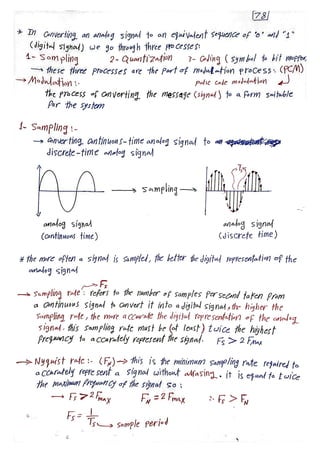 [7.8]
* In Converting an analog signal to an equivalent sequence of "0" and "1"
(digital signal) we go through three processes:
1- Sampling 2- Quantization 3- Coding (symbol to bit mapper)
→ these three processes are the part of modulation process: (PCM)
→ Modulation:- pulse code modulation
the process of converting the message (signal) to a form suitable
for the system
1- Sampling:-
→ converting continuous-time analog signal to an
discrete-time analog signal
Ts
→ sampling →
analog signal analog signal
(continuous time) (discrete time)
# the more often a signal is sampled, the better the digital representation of the
analog signal
→ Fs
→ Sampling rate: refers to the number of samples per second taken from
a continuous signal to convert it into a digital signal, the higher the
sampling rate, the more accurate the digital representation of the analog
signal. this sampling rate must be (at least) twice the highest
frequency to accurately represent the signal. Fs > 2 Fmax
→ Nyquist rate:- (FN) → this is the minimum sampling rate required to
accurately represent a signal without aliasing. it is equal to twice
the maximum frequency of the signal so:
→ Fs > 2Fmax FN = 2 Fmax ∴ Fs > FN
Fs = 1/Ts → sample period